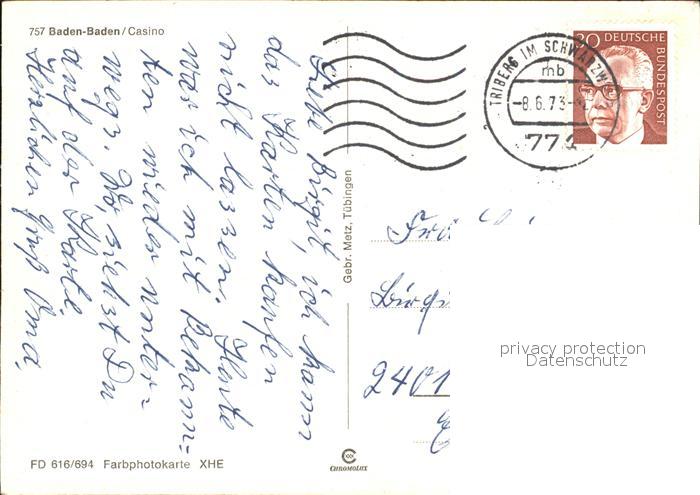 757 Baden-Baden / Casino
Liebe Birgit, ich kann
das Karten kaufen
nicht lassen. Heute
war ich mit Bekann=
ten wieder unter=
wegs. Wo, siehst Du
auf der Karte.
Herzlichen Gruß Oma.
FD 616/694 Farbphotokarte XHE
Gebr. Metz, Tübingen
CHROMOLUX
TRIBERG IM SCHWARZW
mb
-8.6.73-
30 DEUTSCHE
BUNDESPOST
Birgi
2401
privacy protection
Datenschutz